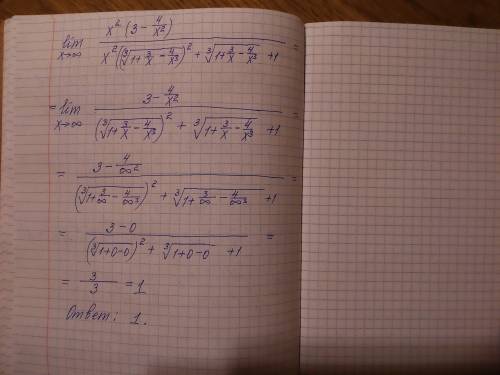 lim x→∞ x²(3 − 4/x²) / x²((∛(1+3/x−4/x³))² + ∛(1+3/x−4/x³) + 1) =
= lim x→∞ (3 − 4/x²) / ((∛(1+3/x−4/x³))² + ∛(1+3/x−4/x³) + 1) =
= (3 − 4/∞²) / ((∛(1+3/∞−4/∞³))² + ∛(1+3/∞−4/∞³) + 1) =
= (3−0) / ((∛(1+0−0))² + ∛(1+0−0) + 1) =
= 3/3 = 1
Ответ: 1.